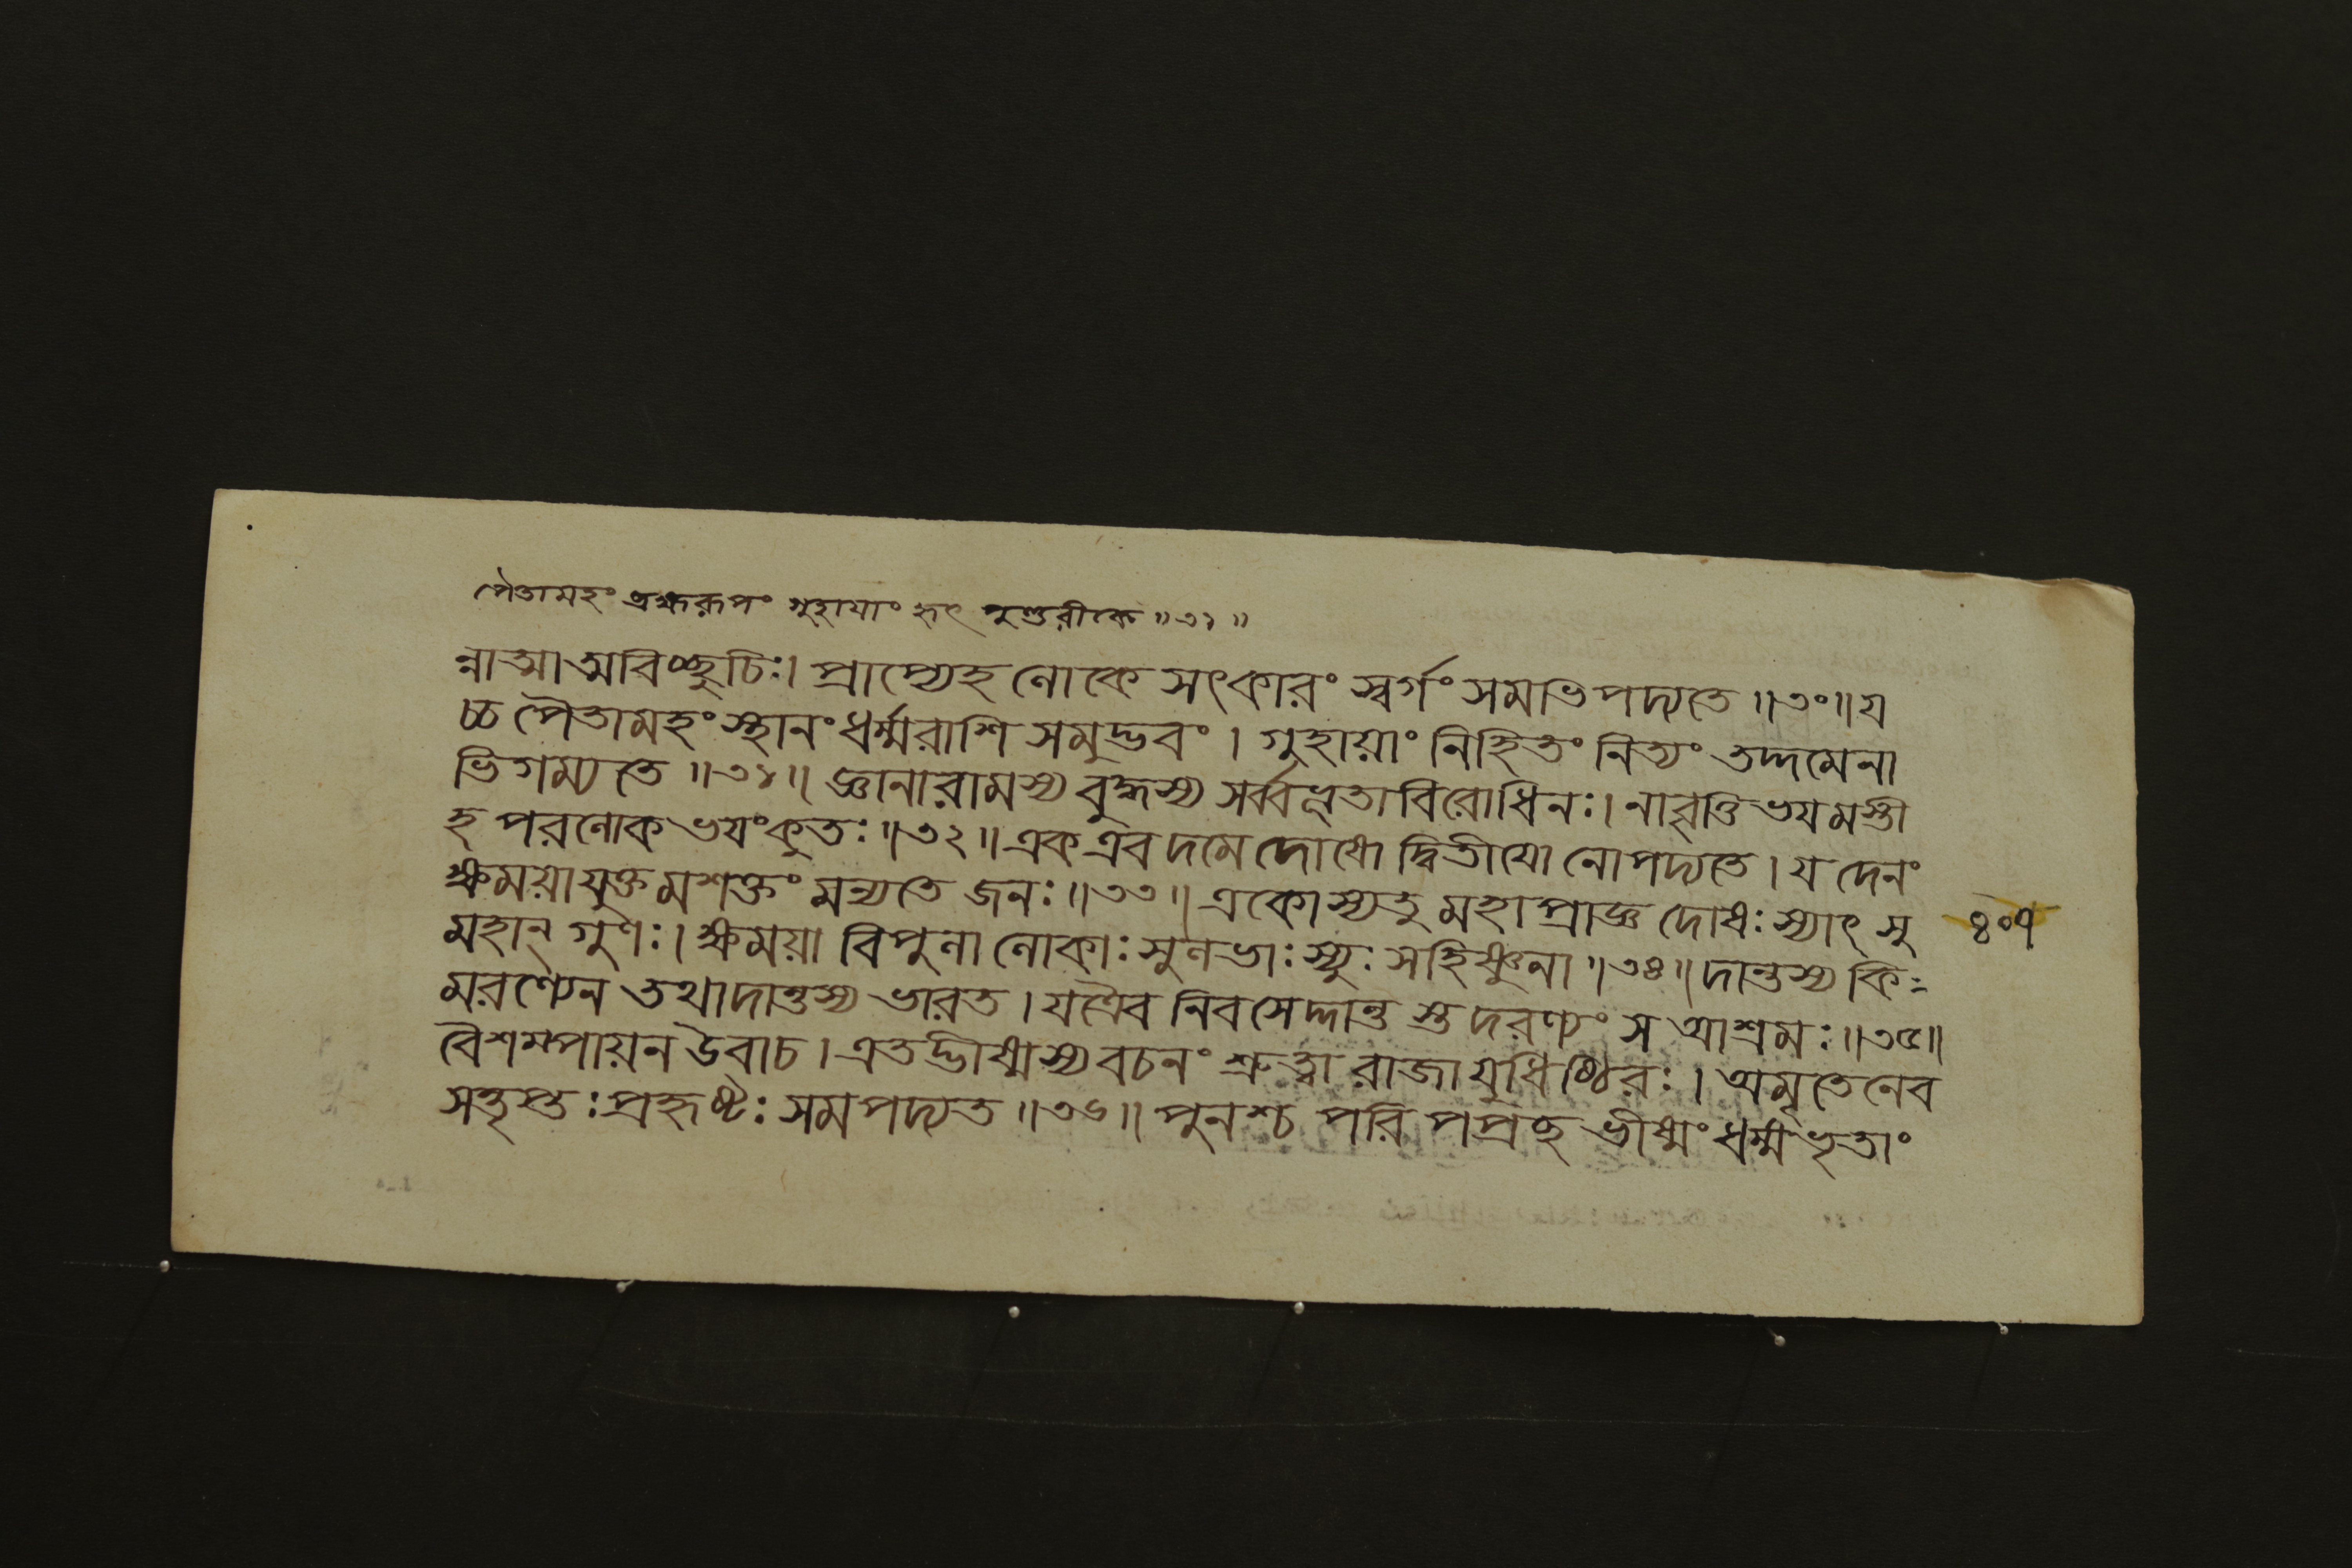 পৈতামহং ব্রহ্মরূপং গুহাযাং হৃৎ পুণ্ডরীকে ॥৩১॥
ন্নাত্মা আত্মবিচ্ছুচিঃ। প্রাপ্যেহ লোকে সৎকারং স্বর্গং সমভিপদ্যতে ॥৩০॥ য
চ্চ পৈতামহং স্থানং ধর্ম্মরাশি সমুদ্ভবং । গুহায়াং নিহিতং নিত্যং তদ্দমেনা
ভিগম্যতে ॥৩১॥ জ্ঞানারামস্য বুদ্ধস্য সর্ব্বভূতাবিরোধিনঃ। নাবৃত্তি ভযমস্তী
হ পরলোক ভযং কুতঃ ॥৩২॥ এক এব দমে দোষো দ্বিতীযো নোপদ্যতে । য দেনং
ক্ষময়া যুক্তমশক্তং মন্যতে জনঃ ॥৩৩॥ একোস্যতু মহাপ্রাজ্ঞ দোষঃ স্যাৎ সু ৪০৭
মহান্ গুণঃ। ক্ষময়া বিপুলা লোকাঃ সুলভাঃ স্যুঃ সহিষ্ণুনা ॥৩৪॥ দান্তস্য কি
মরণ্যেন তথাদান্তস্য ভারত । যত্রৈব নিবসেদ্দান্ত স্তদরণ্যং স আশ্রমঃ ॥৩৫॥
বৈশম্পায়ন উবাচ । এতদ্ভীষ্মস্য বচনং শ্রুত্বা রাজা যুধিষ্ঠিরঃ । অমৃতেনেব
সতৃপ্তঃ প্রহৃষ্টঃ সমপদ্যত ॥৩৬॥ পুনশ্চ পরি পপ্রচ্ছ ভীষ্মং ধর্ম্মভৃতাং